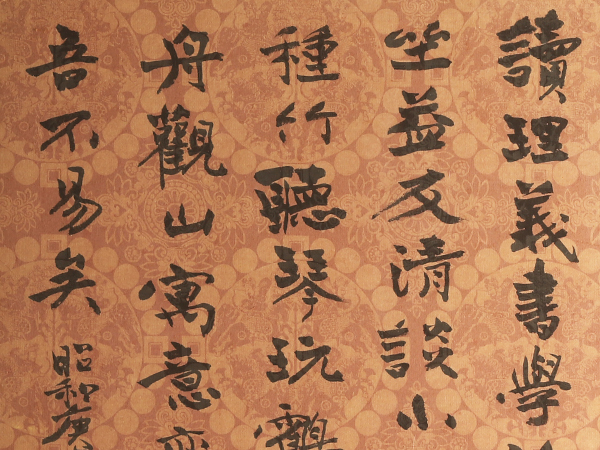 讀理義書學
坐益友清談小
種竹聽琴玩鶴
舟觀山寓意
吾不易矣
昭和庚